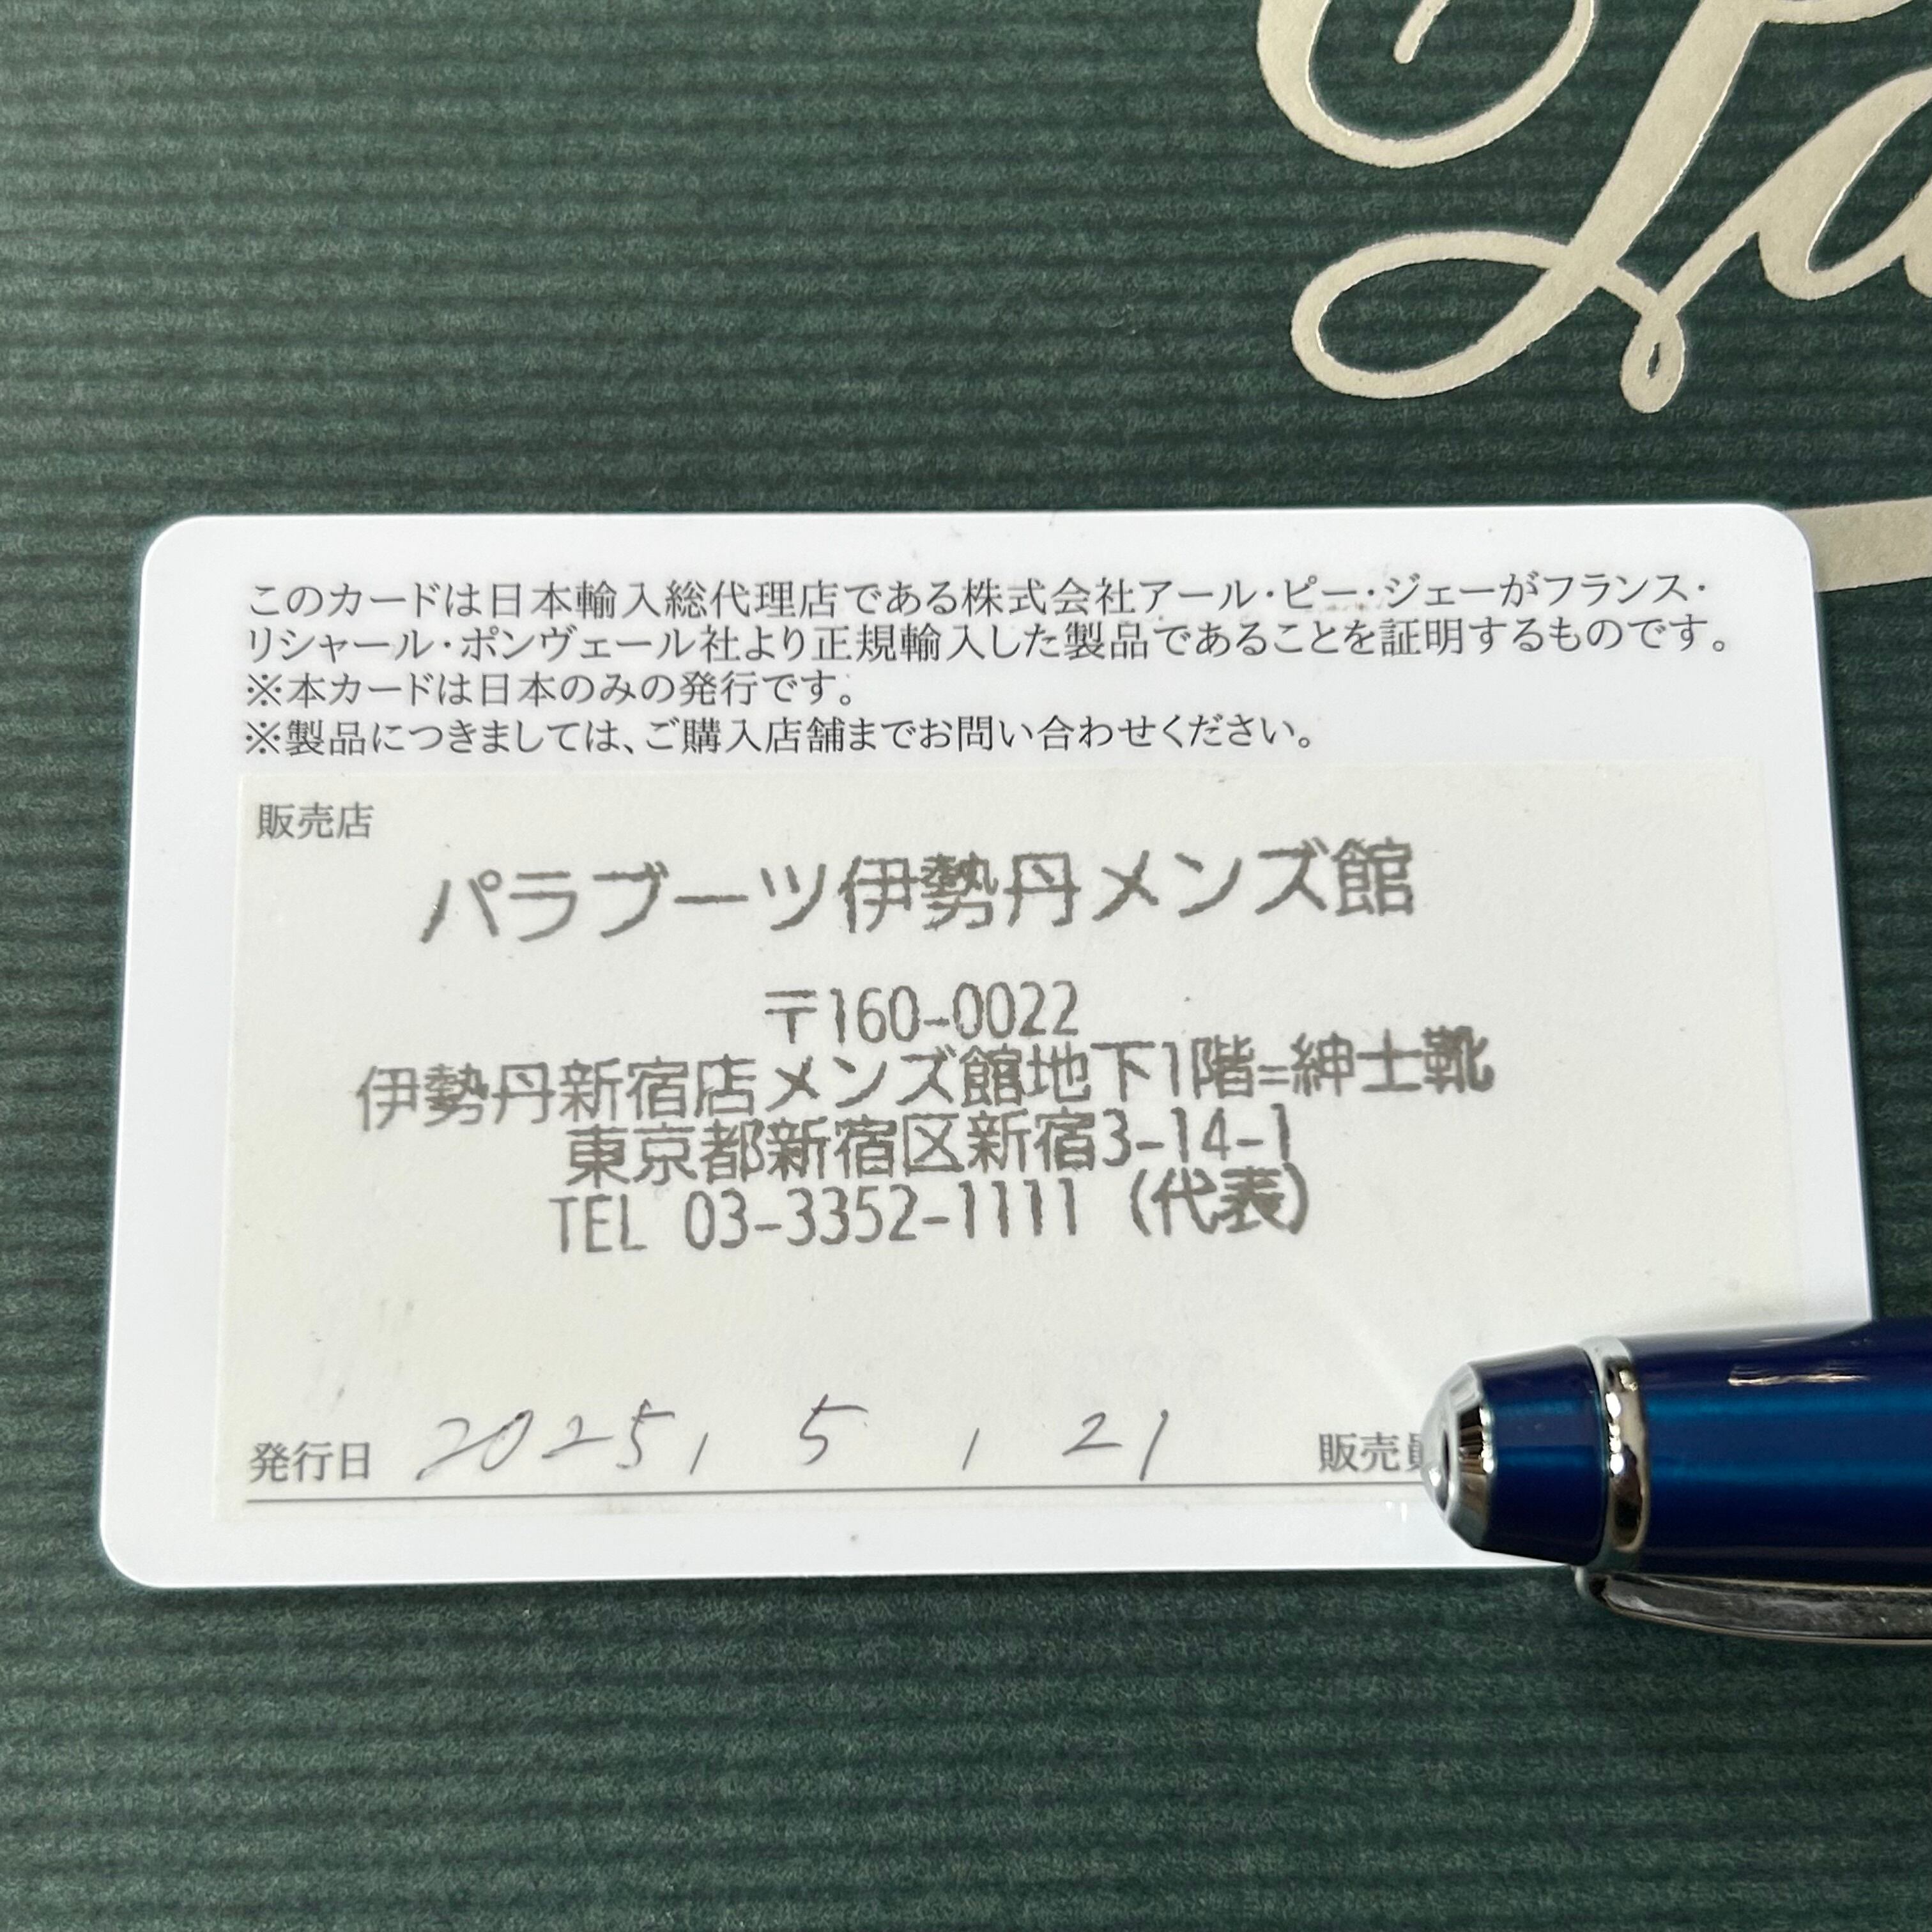 このカードは日本輸入総代理店である株式会社アール・ピー・ジェーがフランス・
リシャール・ポンヴェール社より正規輸入した製品であることを証明するものです。
※本カードは日本のみの発行です。
※製品につきましては、ご購入店舗までお問い合わせください。
販売店
パラブーツ伊勢丹メンズ館
〒160-0022
伊勢丹新宿店メンズ館地下1階=紳士靴
東京都新宿区新宿3-14-1
TEL 03-3352-1111 (代表)
発行日 2025, 5, 21 販売員